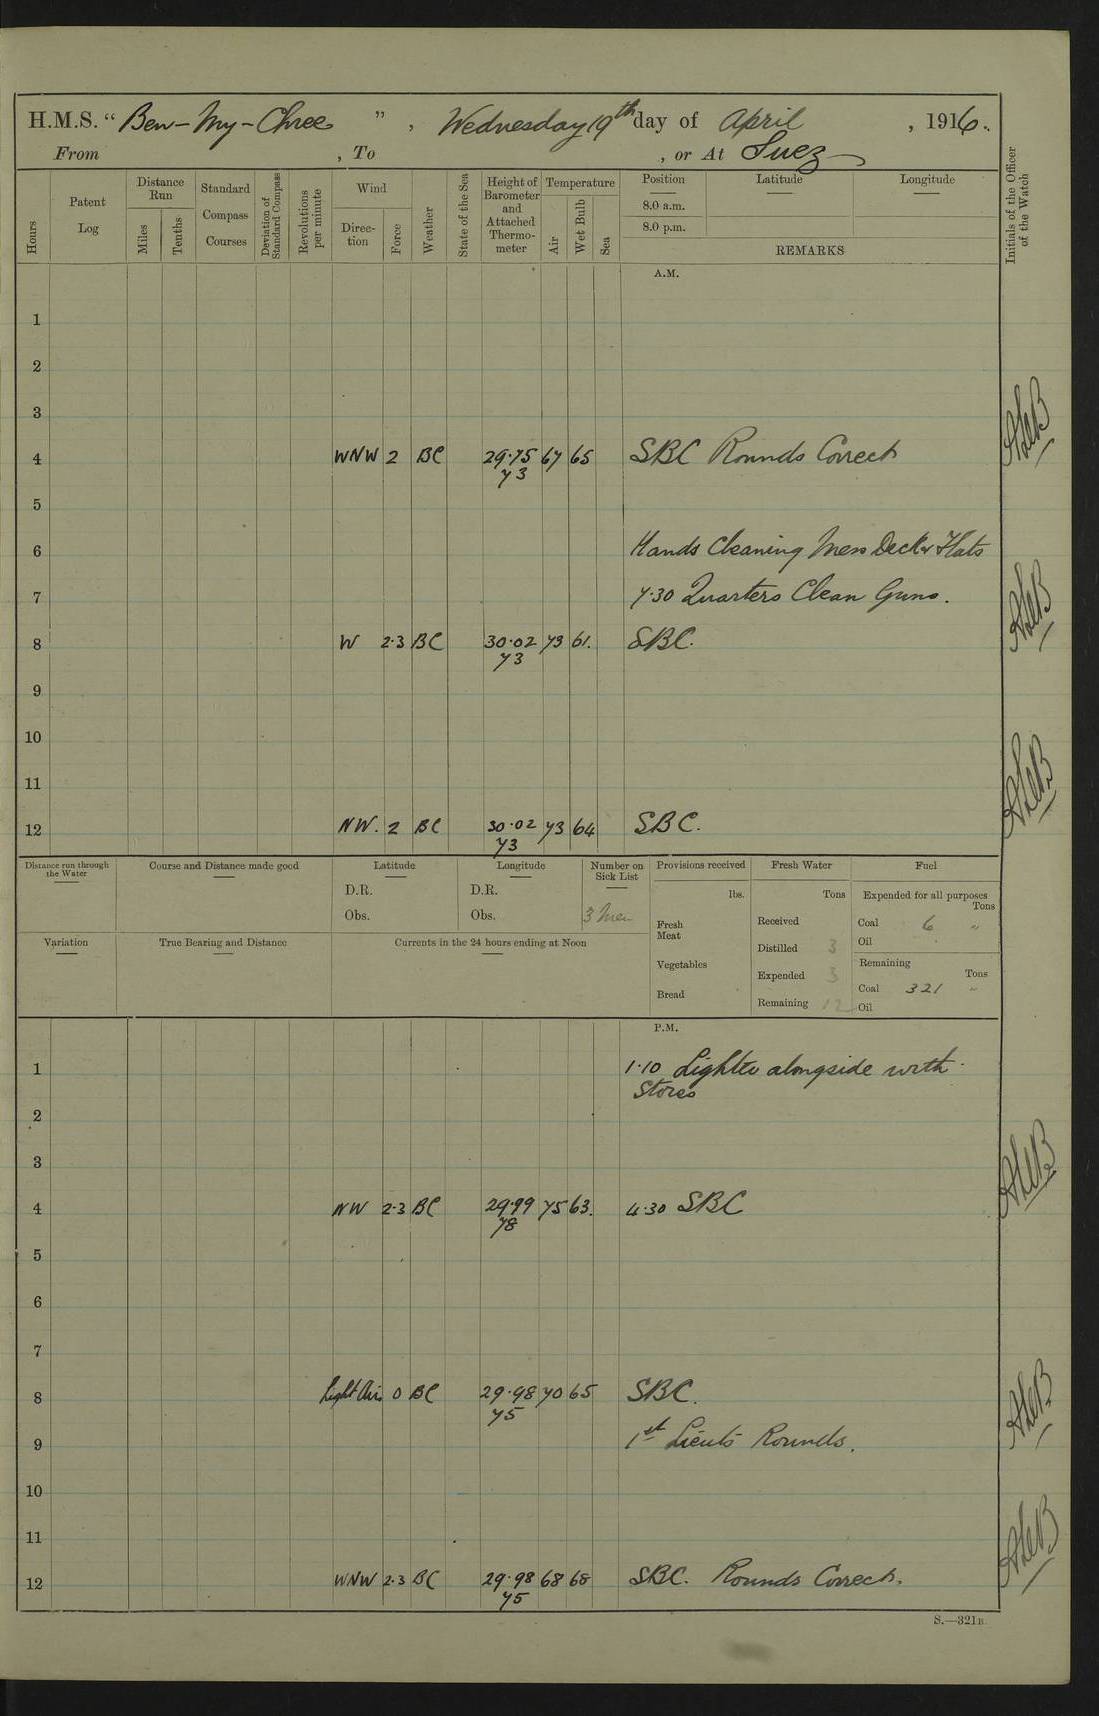 H.M.S. “ Ben-My-Chree ” , Wednesday 19th day of April , 1916.
From , To , or At Suez
Hours
Patent Log
Distance Run
Miles
Tenths
Standard Compass Courses
Deviation of Standard Compass
Revolutions per minute
Wind
Direction
Force
Weather
State of the Sea
Height of Barometer and Attached Thermometer
Temperature
Air
Wet Bulb
Sea
Position Latitude Longitude
8.0 a.m.
8.0 p.m.
REMARKS
Initials of the Officer of the Watch
A.M.
1
2
3
4 WNW 2 BC 29.75 67 65 SBC Rounds Correct
73
5
6 Hands Cleaning Mess Deck & Flats
7 7.30 Quarters Clean Guns.
8 W 2.3 BC 30.02 73 61. SBC.
73
9
10
11
12 NW. 2 BC 30.02 73 64 SBC.
73
Distance run through the Water
Course and Distance made good
Latitude
D.R.
Obs.
Longitude
D.R.
Obs.
Number on Sick List
3 Men
Provisions received
lbs.
Fresh Meat
Vegetables
Bread
Fresh Water
Tons
Received
Distilled 3
Expended 3
Remaining 12
Fuel
Expended for all purposes
Tons
Coal 6 "
Oil
Remaining
Tons
Coal 321 "
Oil
Variation
True Bearing and Distance
Currents in the 24 hours ending at Noon
P.M.
1 1.10 Lighter alongside with
Stores
2
3
4 NW 2.3 BC 29.99 75 63. 4.30 SBC
78
5
6
7
8 Light Airs 0 BC 29.98 70 65 SBC.
75
9 1st Lieuts Rounds.
10
11
12 WNW 2.3 BC 29.98 68 68 SBC. Rounds Correct.
75
S.—321B.